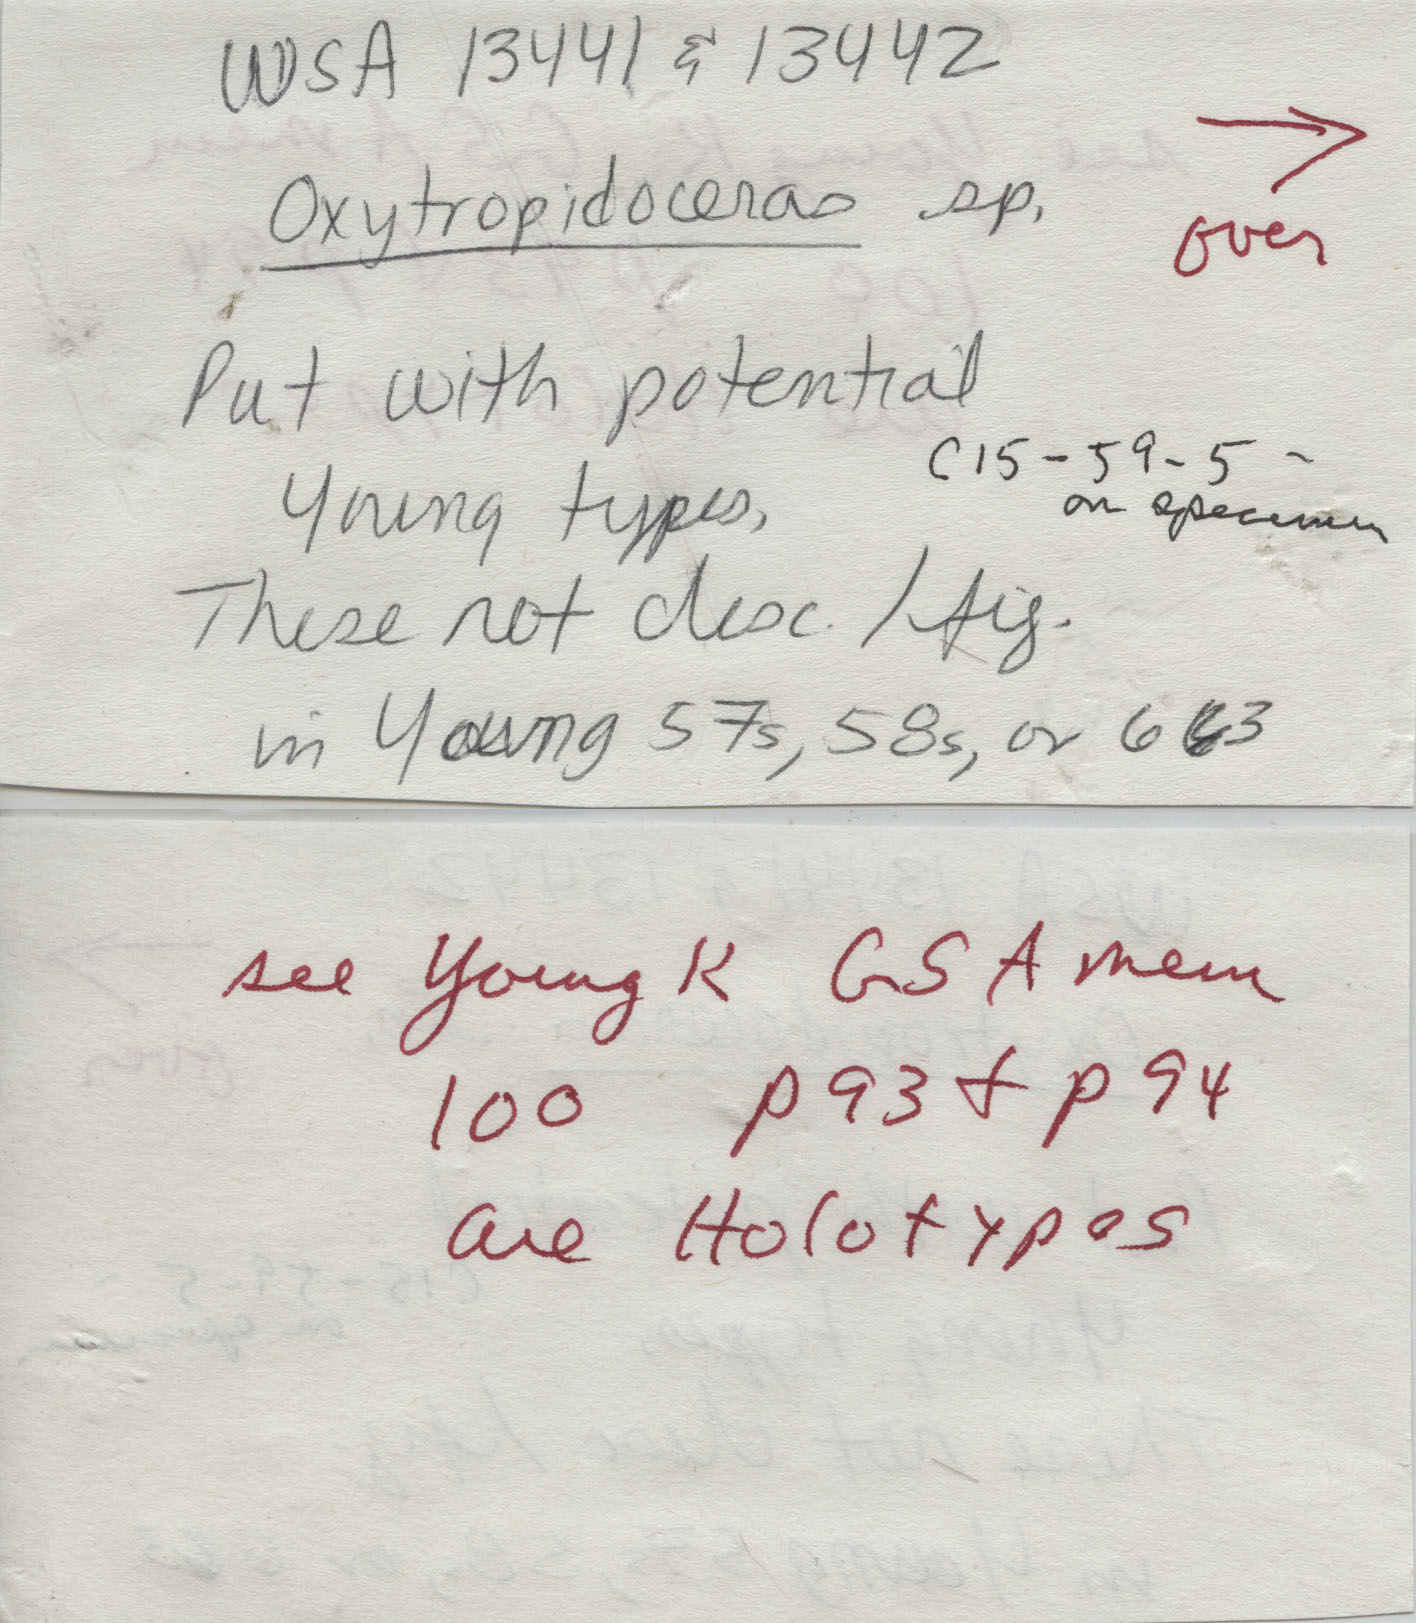 WSA 13441 & 13442
→
over
Oxytropidoceras sp.
Put with potential
Young types.
C15-59-5 -
on specimen
These not desc. / fig.
in Young 57s, 58s, or 63
see Young K GSA mem
100 p 93 + p 94
are Holotypes